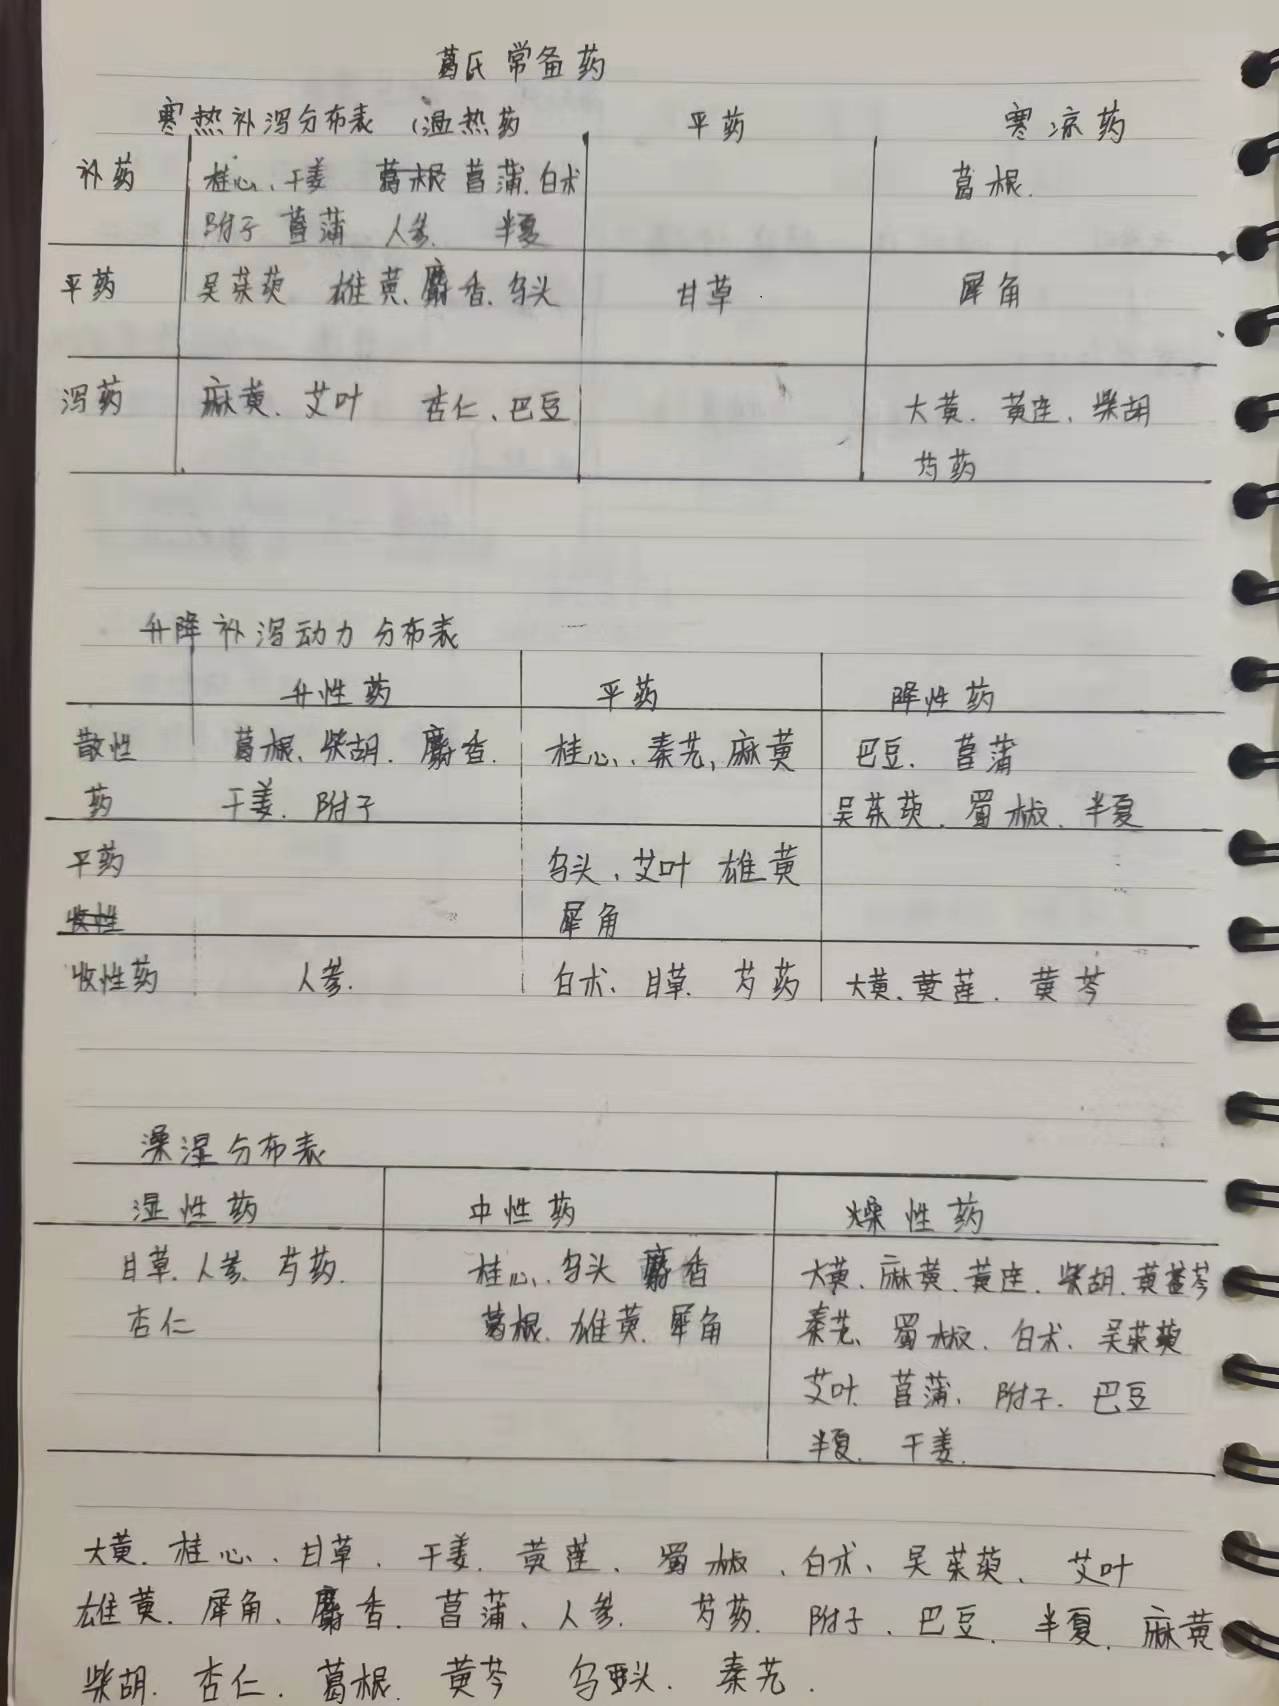 葛氏常备药
寒热补泻分布表（温热药 平药 寒凉药
补药 桂心、干姜 葛根 菖蒲、白术 葛根.
附子 菖蒲 人参. 半夏
平药 吴茱萸 雄黄、麝香、乌头 甘草 犀角
泻药 麻黄、艾叶 杏仁、巴豆 大黄、黄连、柴胡
芍药
升降补泻动力分布表
升性药 平药 降性药
散性 葛根、柴胡、麝香、 桂心、秦艽,麻黄 巴豆、菖蒲
药 干姜、附子 吴茱萸、蜀椒、半夏
平药 乌头、艾叶 雄黄
收性 犀角
收性药 人参. 白术、甘草、芍药 大黄、黄莲、黄芩
澡湿分布表
湿性药 中性药 燥性药
甘草、人参、芍药. 桂心、乌头 麝香 大黄、麻黄、黄连、柴胡、黄芩
杏仁 葛根、雄黄、犀角 秦艽、蜀椒、白术、吴茱萸
艾叶、菖蒲、附子、巴豆
半夏、干姜.
大黄、桂心、甘草、干姜、黄莲、蜀椒、白术、吴茱萸、艾叶
雄黄、犀角、麝香、菖蒲、人参、芍药、附子、巴豆、半夏、麻黄
柴胡、杏仁、葛根、黄芩 乌头、秦艽.